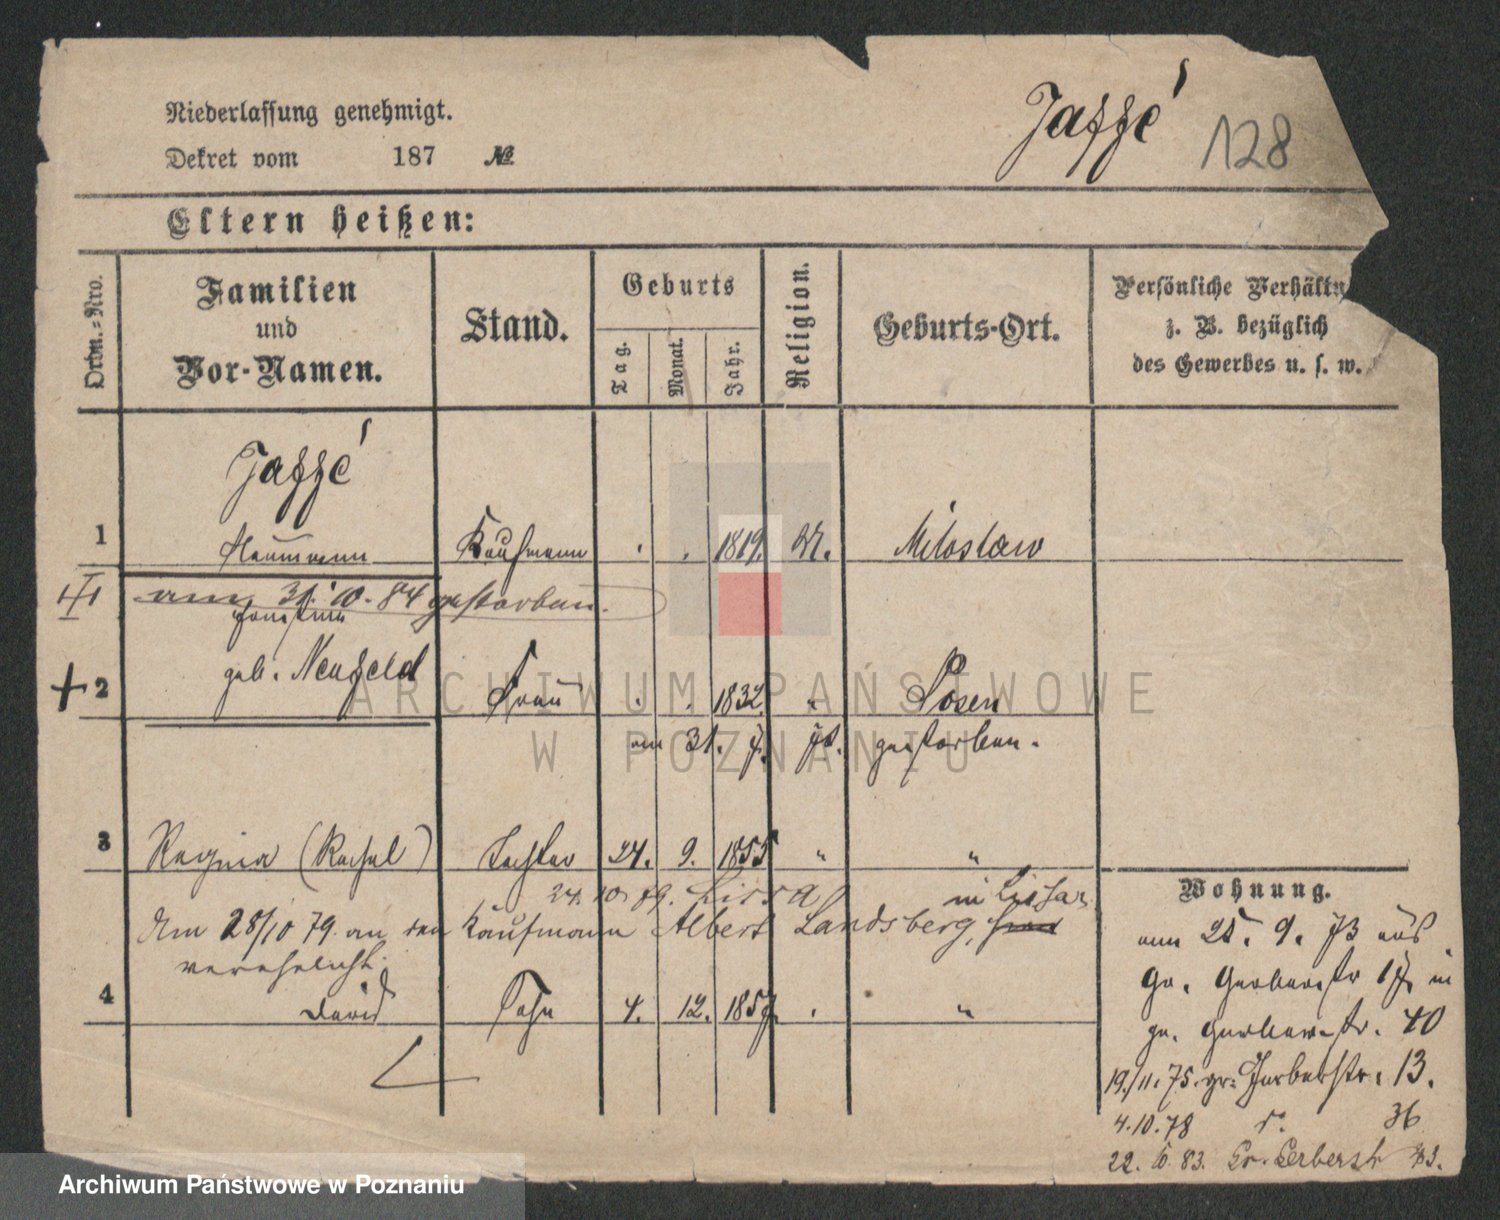 Jaffé 128
Niederlassung genehmigt.
Dekret vom 187 №
Eltern heißen:
Ordn.-Nro.
Familien
und
Vor-Namen.
Stand.
Geburts
Tag.
Monat.
Jahr.
Religion.
Geburts-Ort.
Persönliche Verhältn
z. B. bezüglich
des Gewerbes u. s. w.
Jaffé
1 Kaufmann 1819. Miloslaw
am 31. 10. 84 gestorben.
geb. Neufeld
2 Frau 1832 " Posen
am 31. gestorben.
3 Regina (Rachel) Tochter 24. 9. 1855 " "
24. 10. 79. Lissa in Lissa
Am 28/10 79. an den Kaufmann Albert Landsberg,
verehelicht.
4 David Sohn 4. 12. 1857 "
Wohnung.
am 25. 9. 73 aus
Gr. Gerberstr 17 in
gr. Gerberstr. 40
19./11. 75. gr. Gerberstr. 13.
4.10.78 do 36
22. 83. Gr. Gerberstr
ARCHIWUM PAŃSTWOWE
W POZNANIU
Archiwum Państwowe w Poznaniu